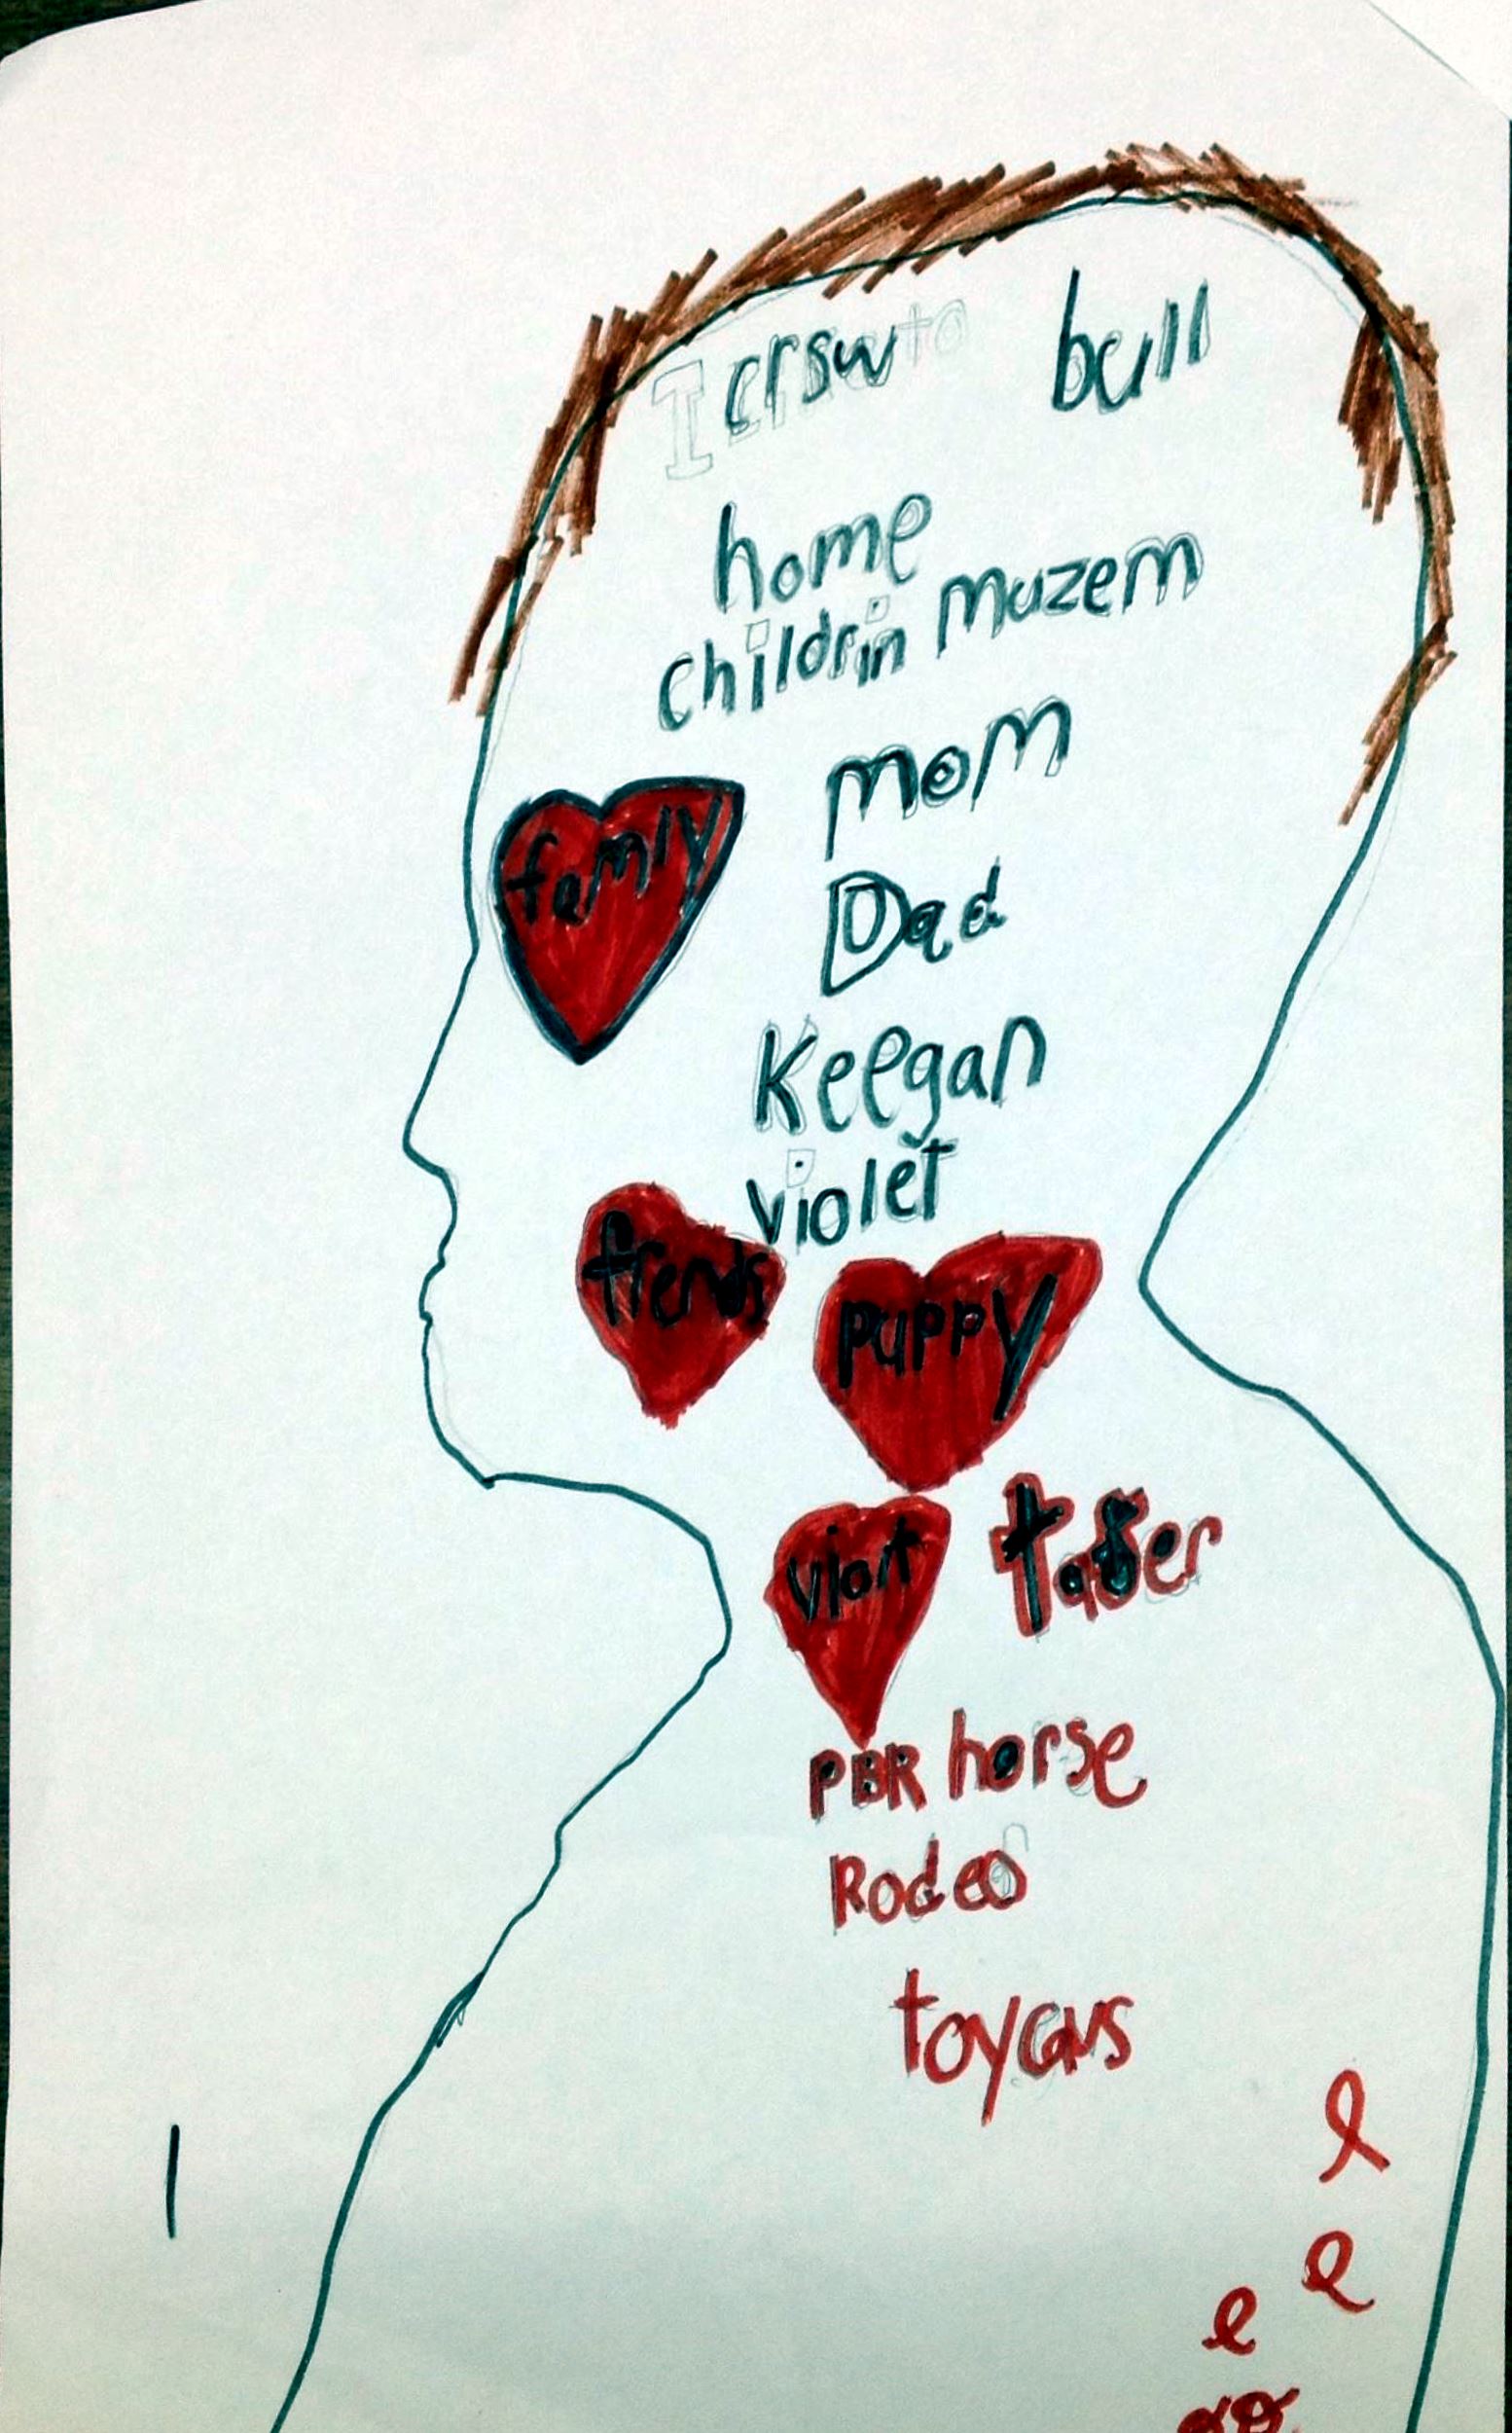 I crsw to bull
home
childrin muzem
mom
famly
Dad
Keegan
violet
frends
puppy
viort
PBR horse
Rodeo
toy
e
e